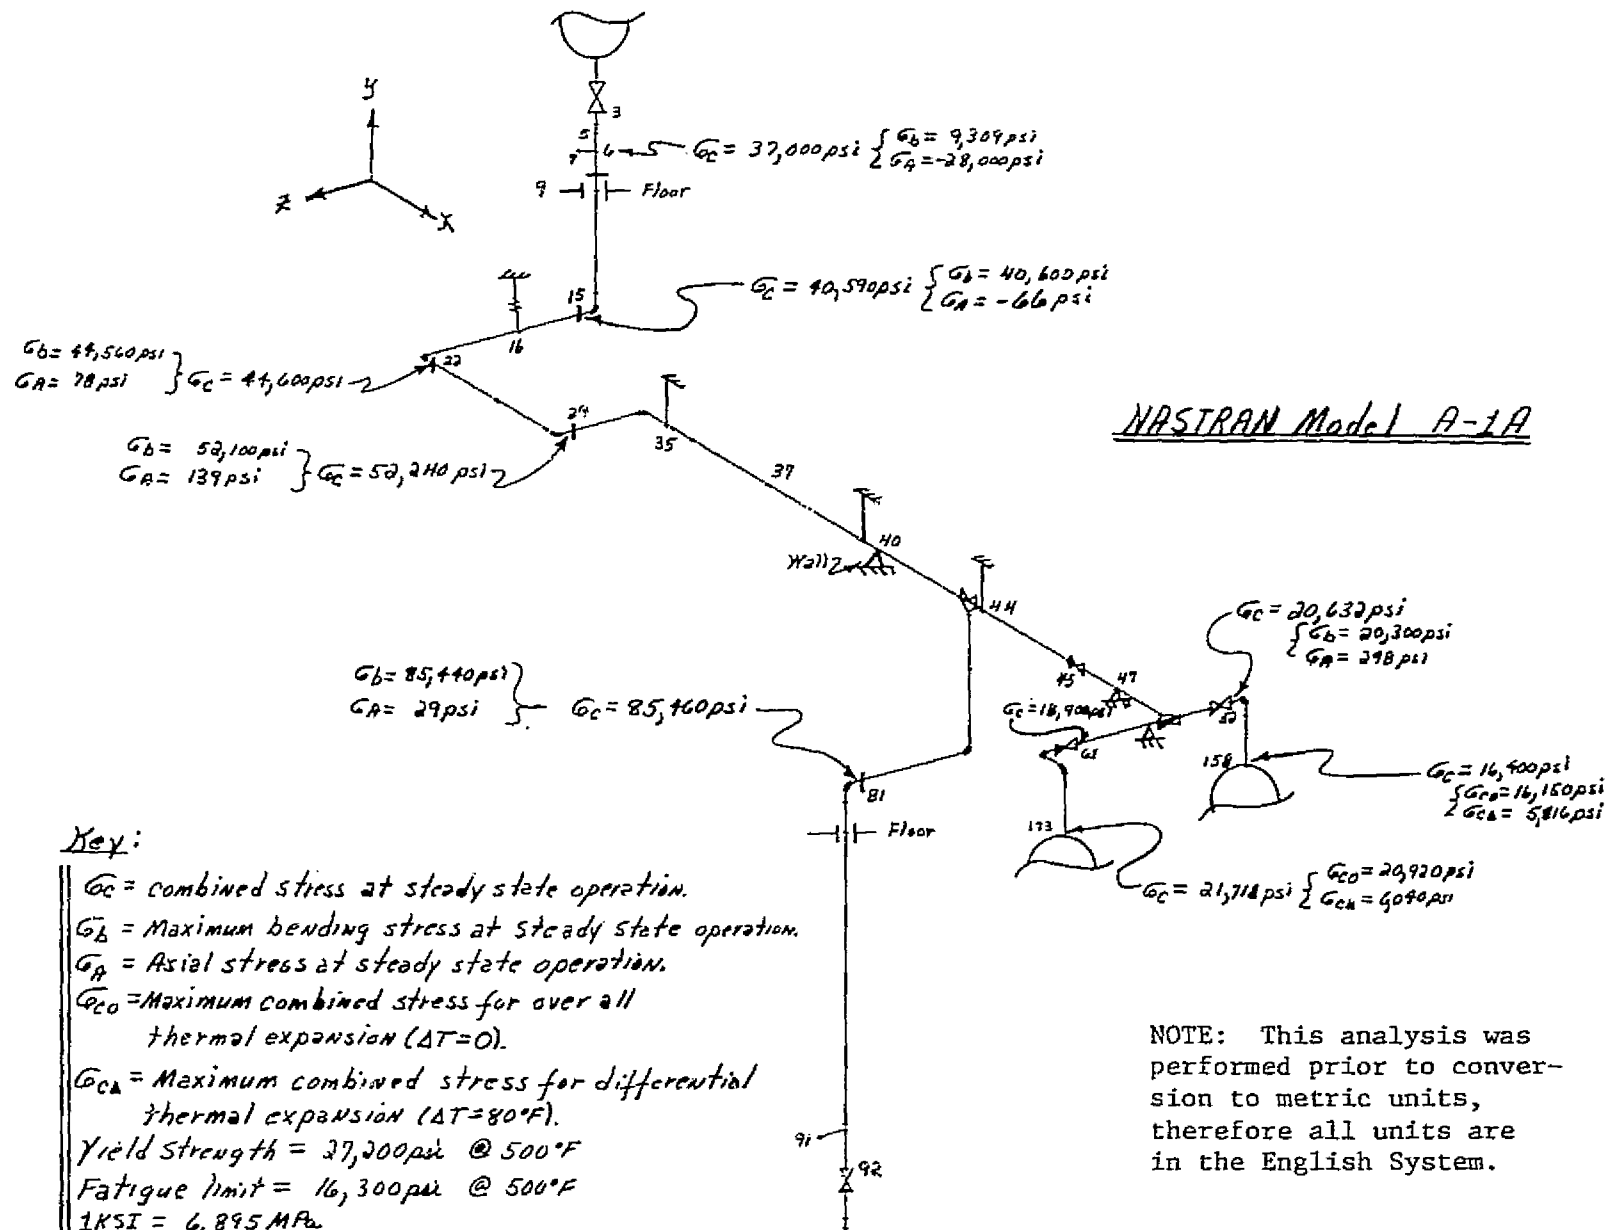 y
z
x
3
5
7 6 σc = 37,000 psi { σb = 9,309 psi
σA = -28,000 psi
9 Floor
15 σc = 40,590 psi { σb = 40,600 psi
σA = -66 psi
16
σb = 44,560 psi
σA = 78 psi } σc = 44,600 psi
22
24
35
NASTRAN Model A-1A
σb = 52,100 psi
σA = 139 psi } σc = 52,240 psi
37
40
Wall
44
σc = 20,632 psi
{ σb = 20,300 psi
σA = 298 psi
45 47
52
σb = 85,440 psi
σA = 29 psi } σc = 85,460 psi
63
158
σc = 16,400 psi
{ σco = 16,150 psi
σcΔ = 5,816 psi
81
Floor
173
σc = 21,718 psi { σco = 20,920 psi
σcΔ = 6,040 psi
Key:
σc = combined stress at steady state operation.
σb = Maximum bending stress at steady state operation.
σA = Axial stress at steady state operation.
σco = Maximum combined stress for over all
thermal expansion (ΔT=0).
σcΔ = Maximum combined stress for differential
thermal expansion (ΔT=80°F).
Yield Strength = 27,200 psi @ 500°F
Fatigue limit = 16,300 psi @ 500°F
1KSI = 6.895 MPa
91
92
NOTE: This analysis was
performed prior to conver-
sion to metric units,
therefore all units are
in the English System.